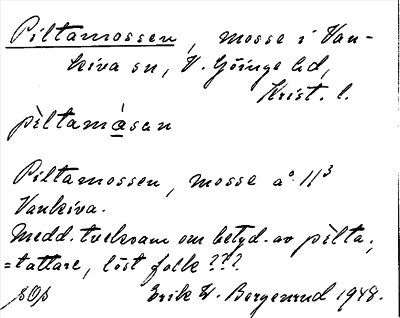 Piltamossen, mosse i Van-
kiva sn, V. Göinge hd,
Krist. l.
pìltamåsan
Piltamossen, mosse a° 11³
Vankiva.
Medd. tveksam om betyd. av pìlta,
=tattare, löst folk???
Erik W. Bergenrud 1948.